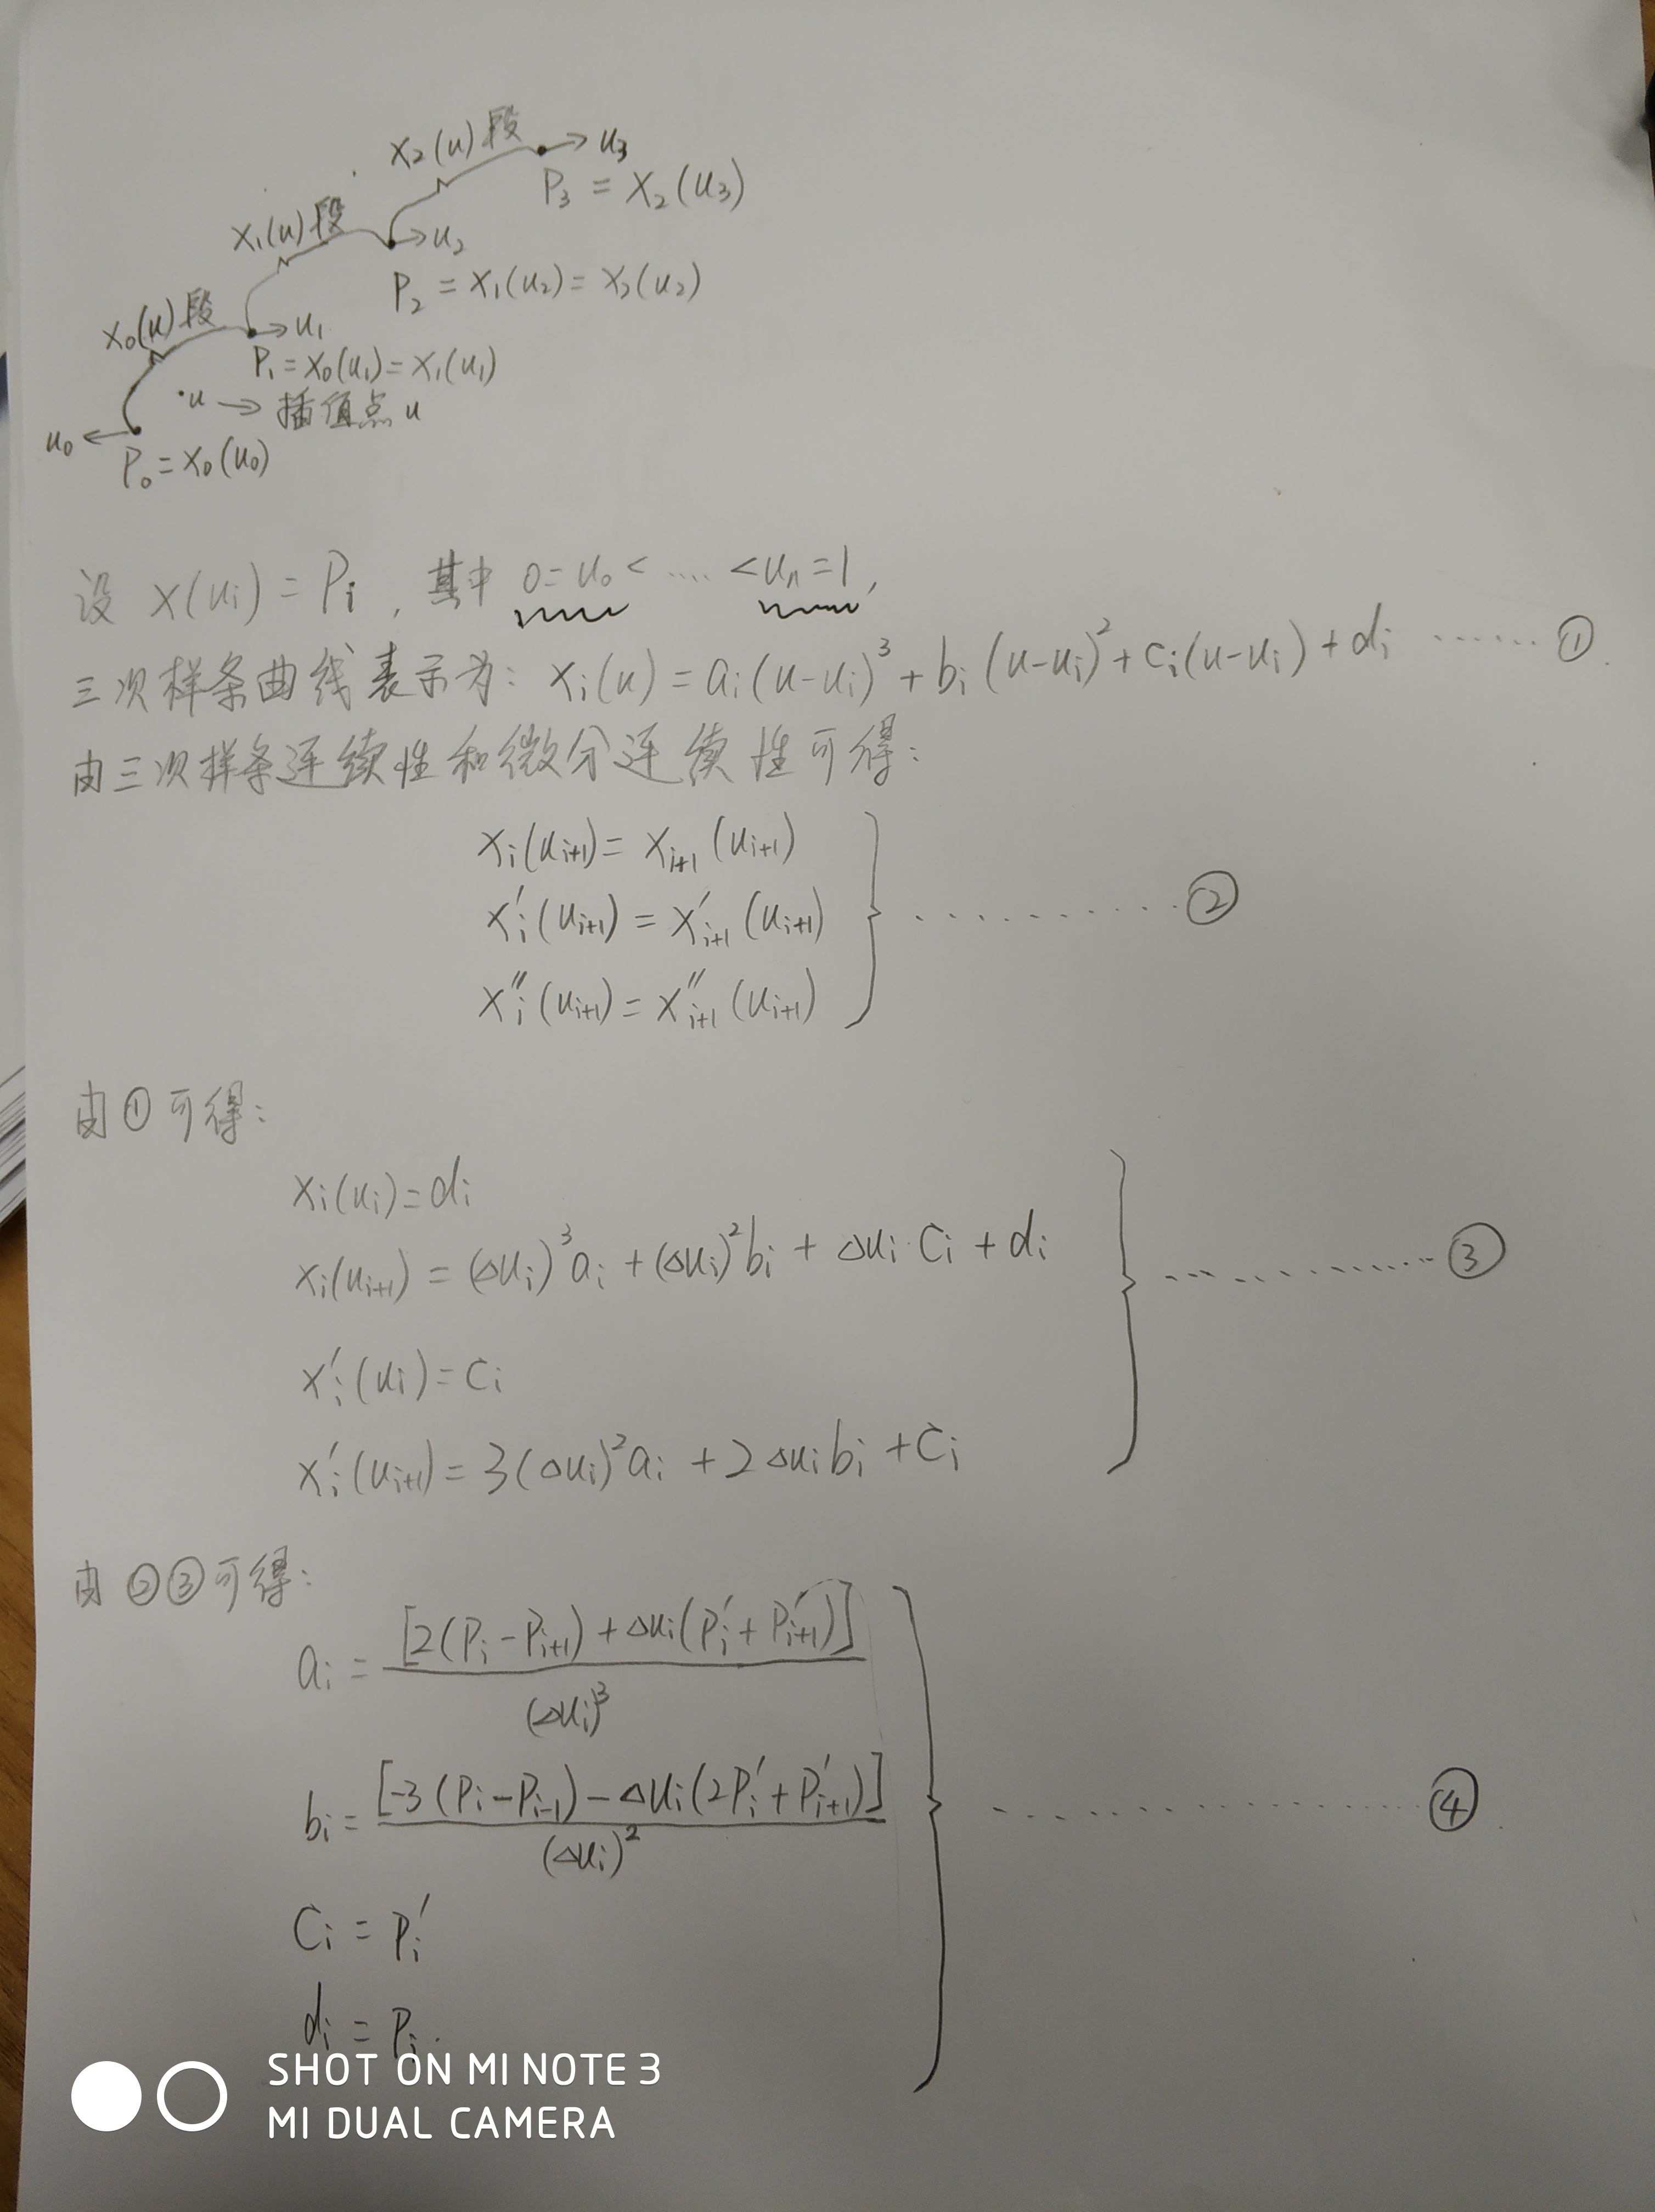 x₂(u)段 → u₃
P₃ = x₂(u₃)
x₁(u)段 → u₂
P₂ = x₁(u₂) = x₂(u₂)
x₀(u)段 → u₁
P₁ = x₀(u₁) = x₁(u₁)
·u → 插值点u
u₀ ←
P₀ = x₀(u₀)
设 x(uᵢ) = Pᵢ , 其中 0 = u₀ < .... < uₙ = 1 ,
三次样条曲线表示为: xᵢ(u) = aᵢ(u-uᵢ)³ + bᵢ(u-uᵢ)² + cᵢ(u-uᵢ) + dᵢ ....... ①
由三次样条连续性和微分连续性可得:
xᵢ(uᵢ₊₁) = xᵢ₊₁(uᵢ₊₁)
xᵢ′(uᵢ₊₁) = xᵢ₊₁′(uᵢ₊₁) ........ ②
xᵢ″(uᵢ₊₁) = xᵢ₊₁″(uᵢ₊₁)
由①可得:
xᵢ(uᵢ) = dᵢ
xᵢ(uᵢ₊₁) = (Δuᵢ)³aᵢ + (Δuᵢ)²bᵢ + Δuᵢ·cᵢ + dᵢ ........ ③
xᵢ′(uᵢ) = cᵢ
xᵢ′(uᵢ₊₁) = 3(Δuᵢ)²aᵢ + 2Δuᵢbᵢ + cᵢ
由②③可得:
aᵢ = [2(Pᵢ - Pᵢ₊₁) + Δuᵢ(Pᵢ′ + Pᵢ₊₁′)]
(Δuᵢ)³
bᵢ = [-3(Pᵢ - Pᵢ₋₁) - Δuᵢ(2Pᵢ′ + Pᵢ₊₁′)] ........ ④
(Δuᵢ)²
cᵢ = Pᵢ′
dᵢ = Pᵢ
SHOT ON MI NOTE 3
MI DUAL CAMERA